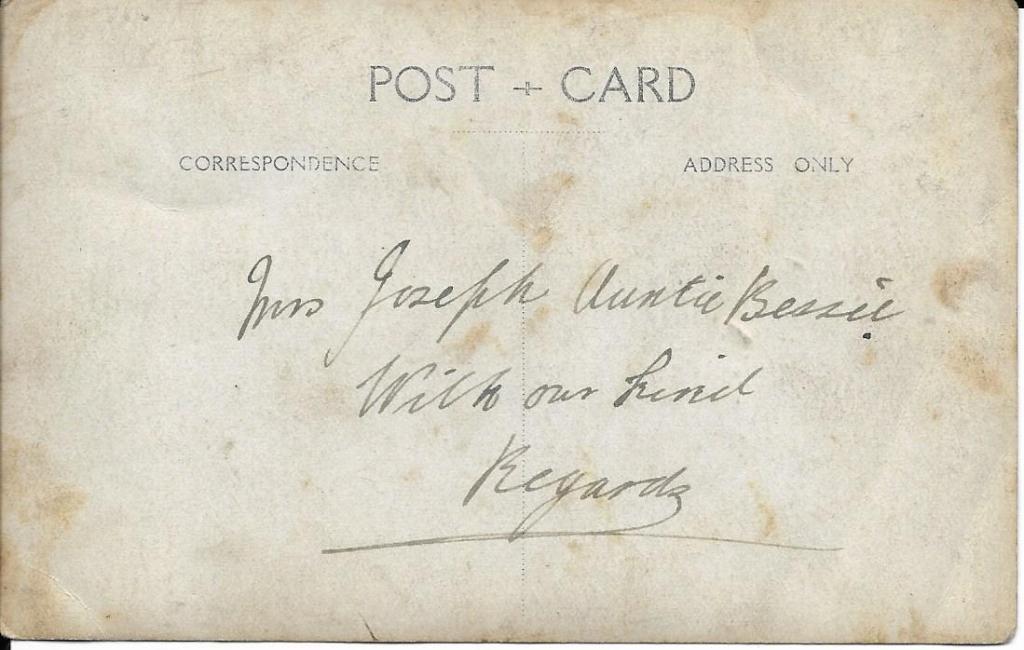 POST + CARD
CORRESPONDENCE
ADDRESS ONLY
Mrs Joseph Auntie Bessie.
With our kind
Regards